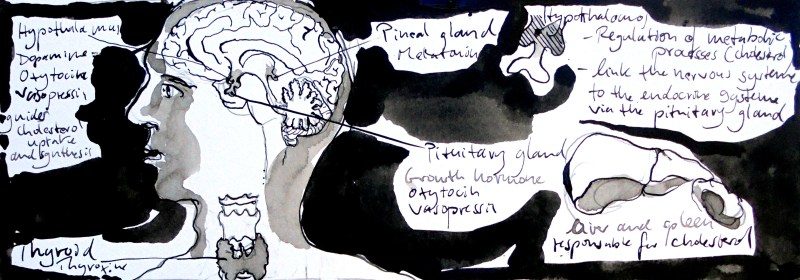 Hypothalamus
Dopamine
Oxytocite
Vasopressin
guides
cholesterol
uptake
and synthesis
Pineal gland
Melatonin
Hypothalamus
- Regulation of metabolic
processes (cholesterol
- link the nervous systeme
to the endocrine systeme
via the pituitary gland
Pituitary gland
Growth hormone
Oxytocin
Vasopressin
Liver and spleen
responsable for cholesterol
Thyroid
Thyroxine